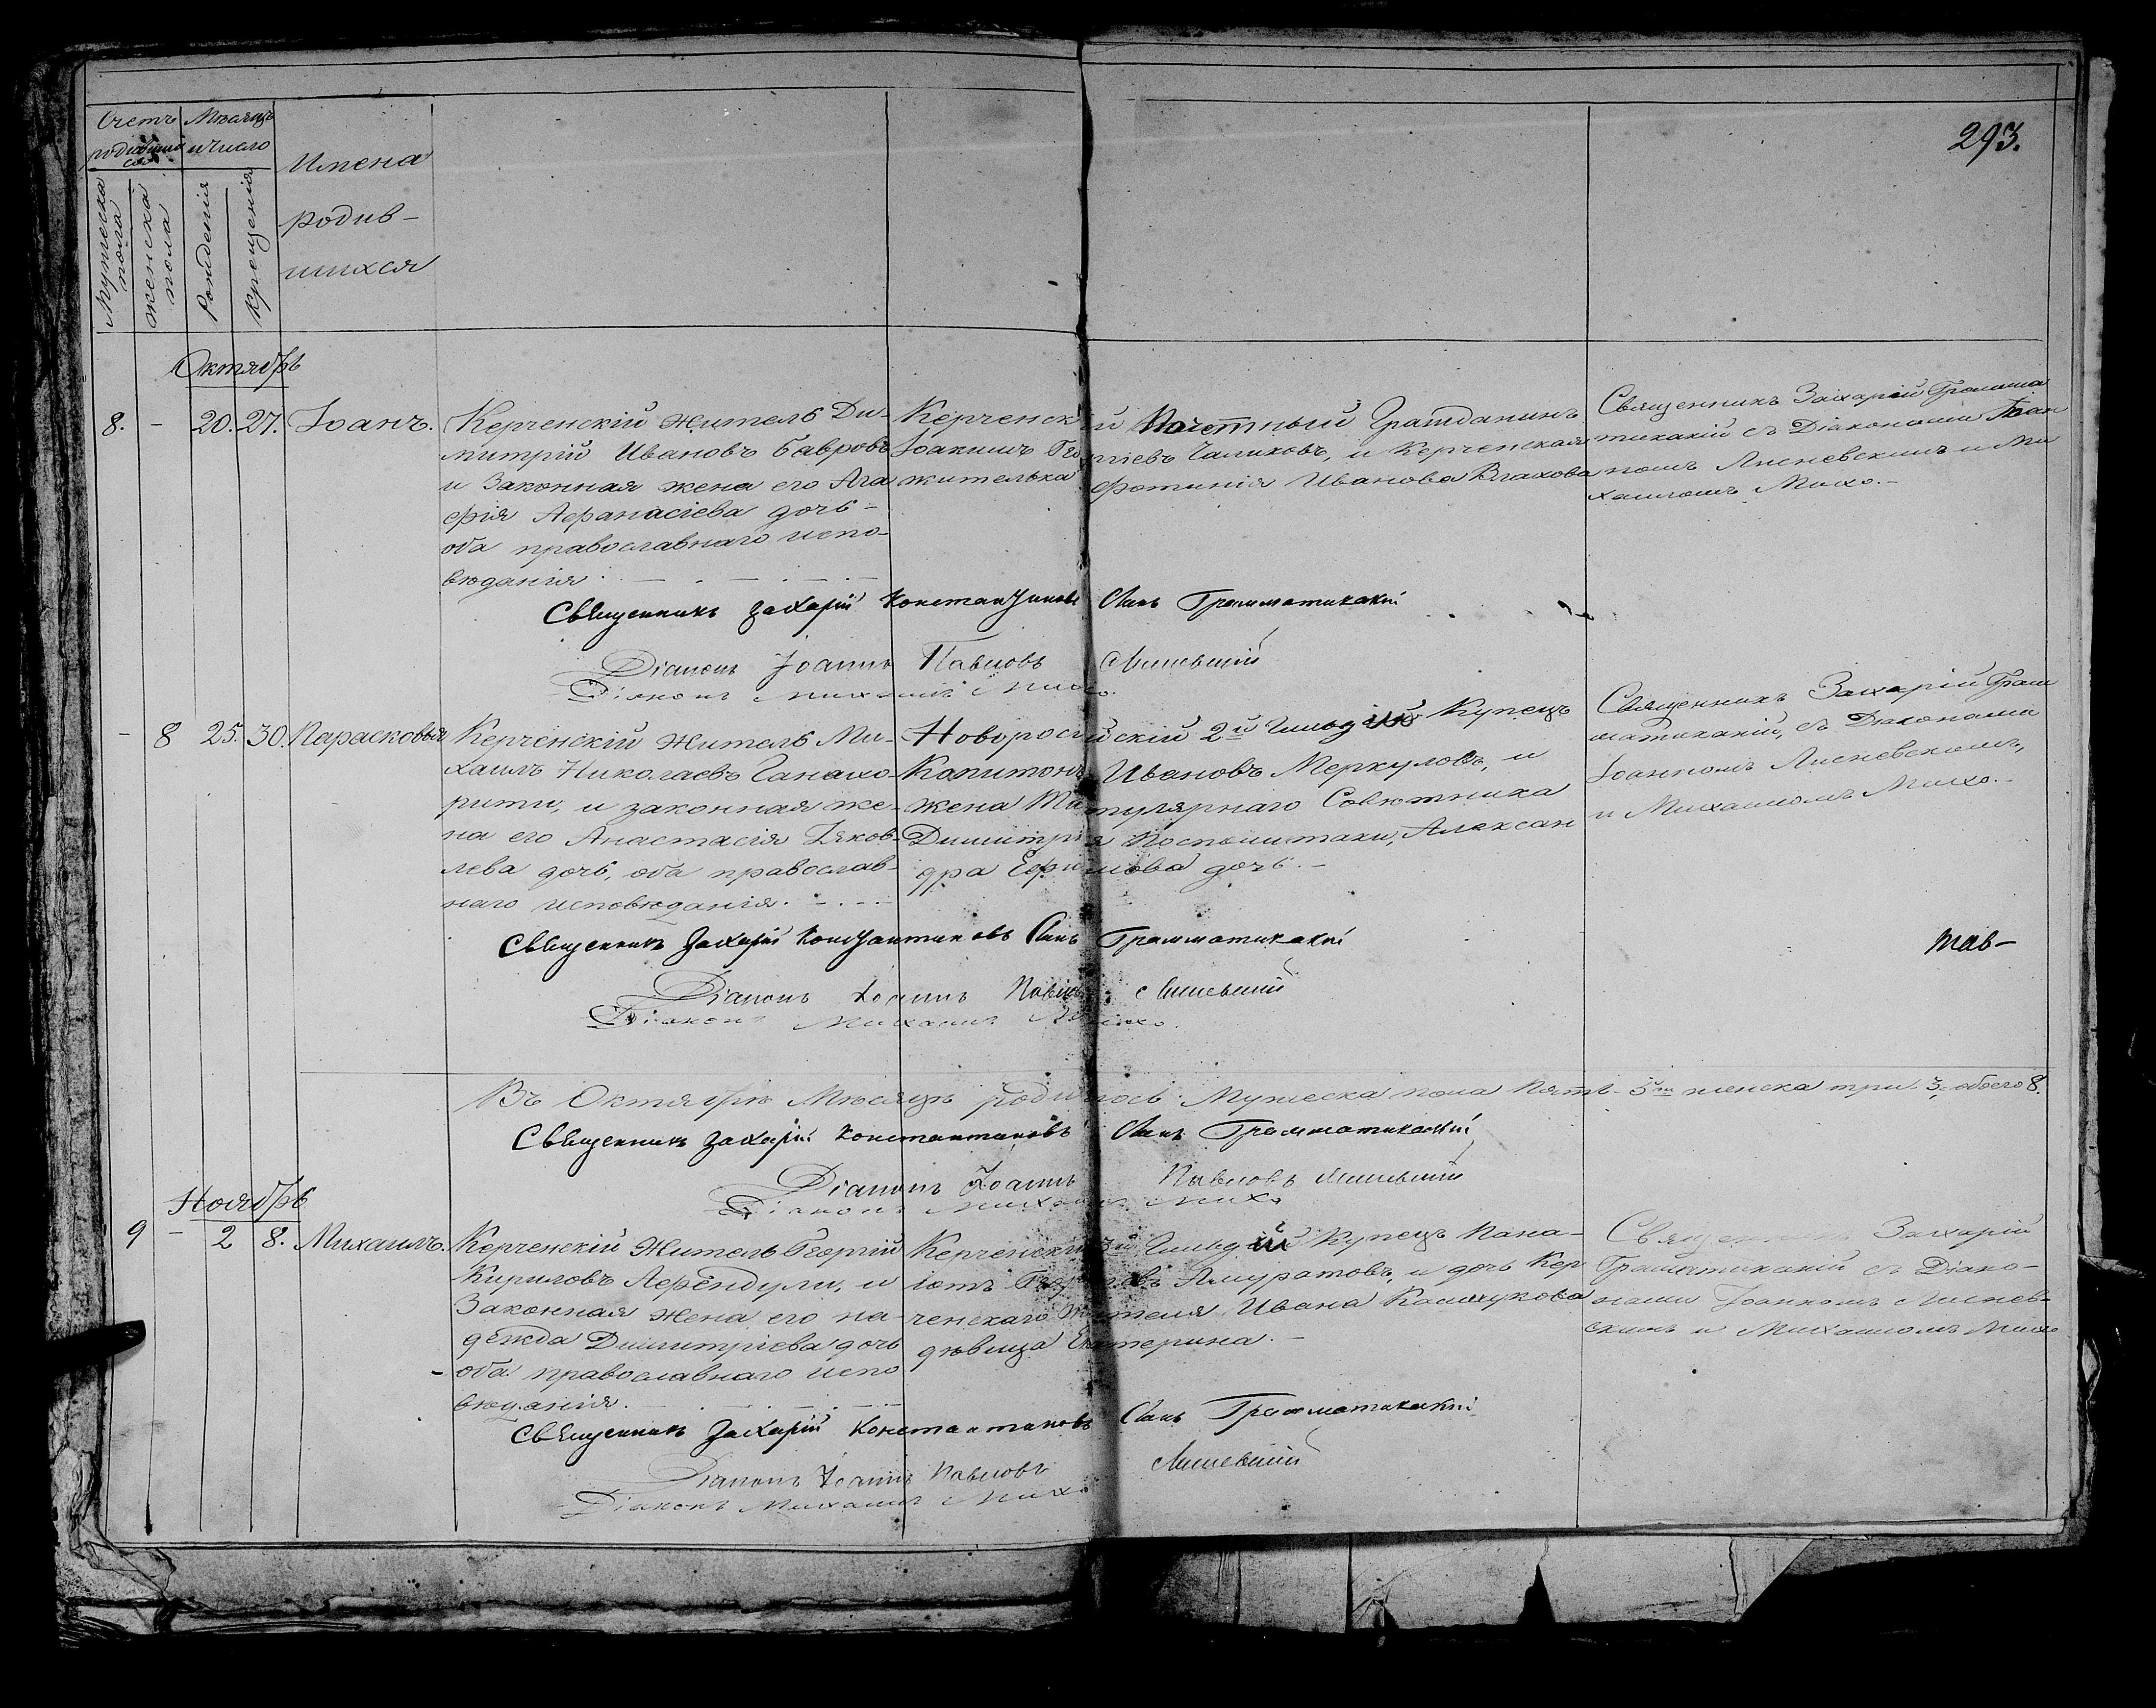 293.
Счетъ родившихся
Мѣсяцъ и число
Мужеска пола
женска пола
Рожденія
Крещенія
Имена
родив-
шихся
Октябрь
8. - 20. 27. Іоанъ.
Керченскій житель Ди-
митрій Ивановъ Бавровъ
и Законная жена его Ага
ефія Аѳанасіева дочь -
оба православнаго испо-
вѣданія.
Керченскій Почетный Гражданинъ
Іоакимъ Георгіевъ Чаликовъ, и Керченская
жителька Фотинія Иванова Влахова
Священникъ Захарій Грамма
тикакій съ Діаконами Іоан
номъ Лисневскимъ и Ми
хаиломъ Михо. -
Священникъ Захарій Константиновъ Сынъ Грамматикакій
Діаконъ Іоаннъ Павловъ Лисневскій
Діаконъ Михаилъ Михо.
- 8 25. 30. Парасковья
Керченскій житель Ми-
хаилъ Николаевъ Ганахо-
рити, и законная же-
на его Анастасія Яков-
лева дочь, оба православ-
наго исповѣданія.
Новоросійскій 2й Гильдій Купецъ
Капитонъ Ивановъ Меркуловъ, и
жена Титулярнаго Совѣтника
Димитрія Алексан
дра Ефимова дочь. -
Священникъ Захарій Грам
матикакій, съ Діаконами
Іоанномъ Лисневскимъ,
и Михаиломъ Михо. -
Священникъ Захарій Константиновъ Сынъ Грамматикакій
Тав-
Діаконъ Іоаннъ Павловъ Лисневскій
Діаконъ Михаилъ Михо.
Въ Октябрѣ Мѣсяцѣ родилось Мужеска пола Пять 5 женска три 3, обоего 8.
Священникъ Захарій Константиновъ Сынъ Грамматикакій
Діаконъ Іоаннъ Павловъ Лисневскій
Діаконъ Михаилъ Михо
Ноябрь
9 - 2 8. Михаилъ.
Керченскій Житель Георгій
Кириловъ Лефендули, и
Законная жена его На-
дежда Димитріева дочь
оба православнаго испо
вѣданія.
Керченскій 3й Гильдій Купецъ Пана-
іотъ Георгіевъ Амуратовъ, и дочь Кер
ченскаго Жителя Ивана
дѣвица Екатерина. -
Священникъ Захарій
Грамматикакій съ Діако-
нами Іоанномъ Лиснев-
скимъ и Михаиломъ Михо
Священникъ Захарій Константиновъ Сынъ Грамматикакій
Діаконъ Іоаннъ Павловъ Лисневскій
Діаконъ Михаилъ Михо